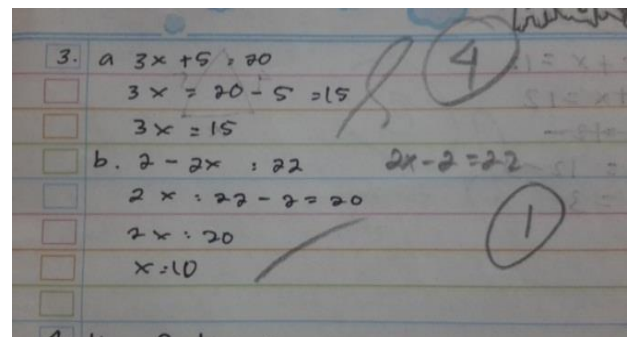 3. a 3x + 5 = 20
3x = 20 - 5 = 15
3x = 15
4
b. 2 - 2x = 22
2x - 2 = 22
2x = 22 - 2 = 20
2x = 20
x = 10
1